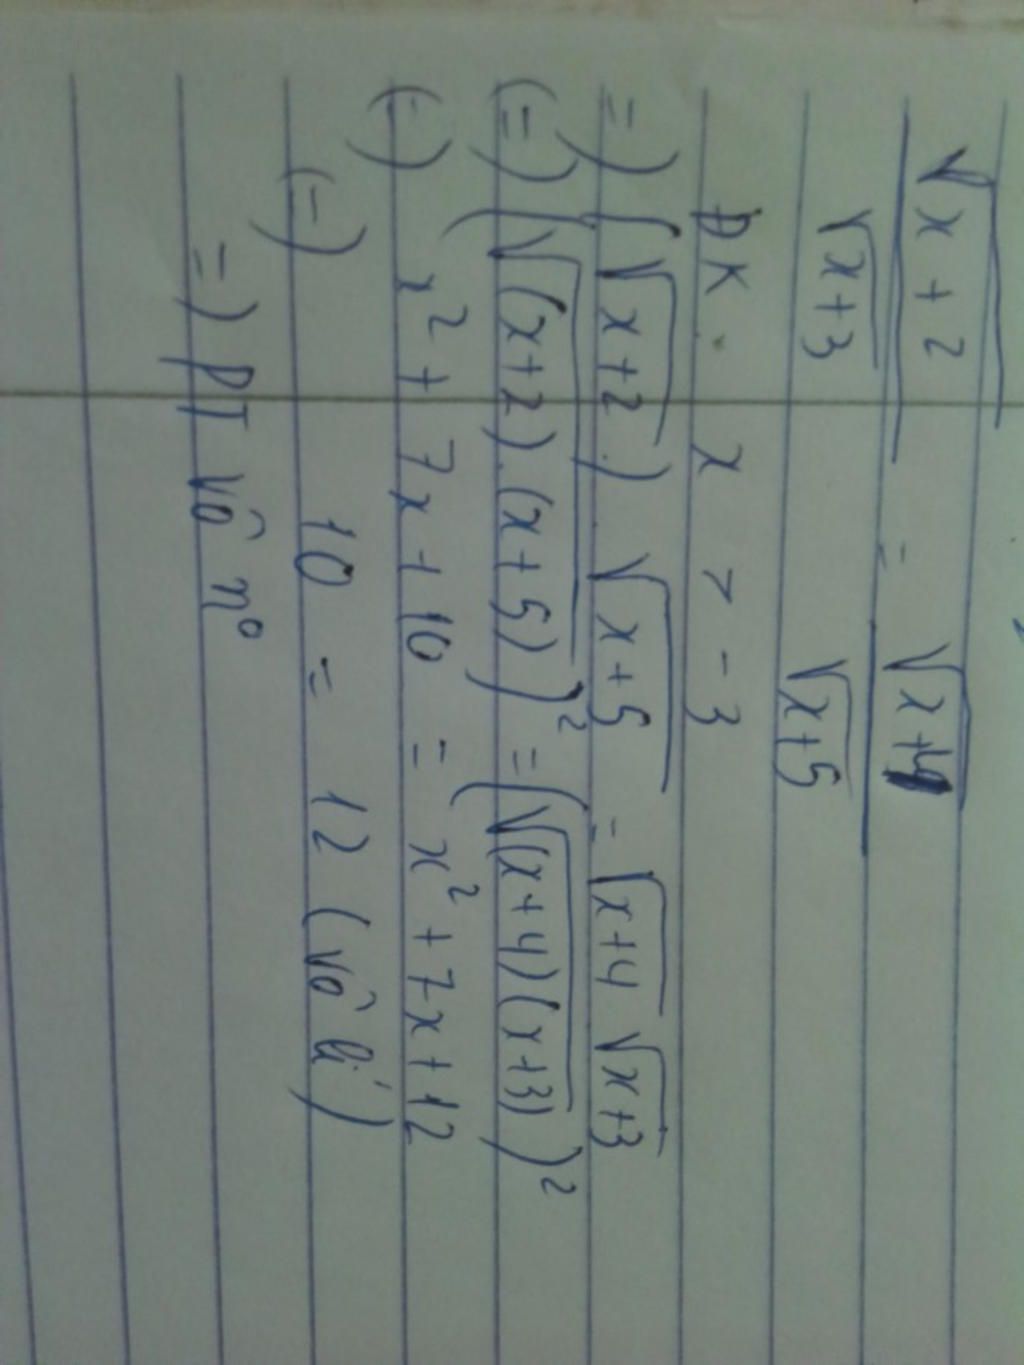 √x + 2 / √x+3 = √x+4 / √x+5
ĐK : x > -3
=) (√x+2 ) . √x+5 = √x+4 √x+3
(=) (√(x+2).(x+5))² = (√(x+4)(x+3))²
(=) x² + 7x + 10 = x² + 7x + 12
(=) 10 = 12 (vô lí)
=) PT vô nº